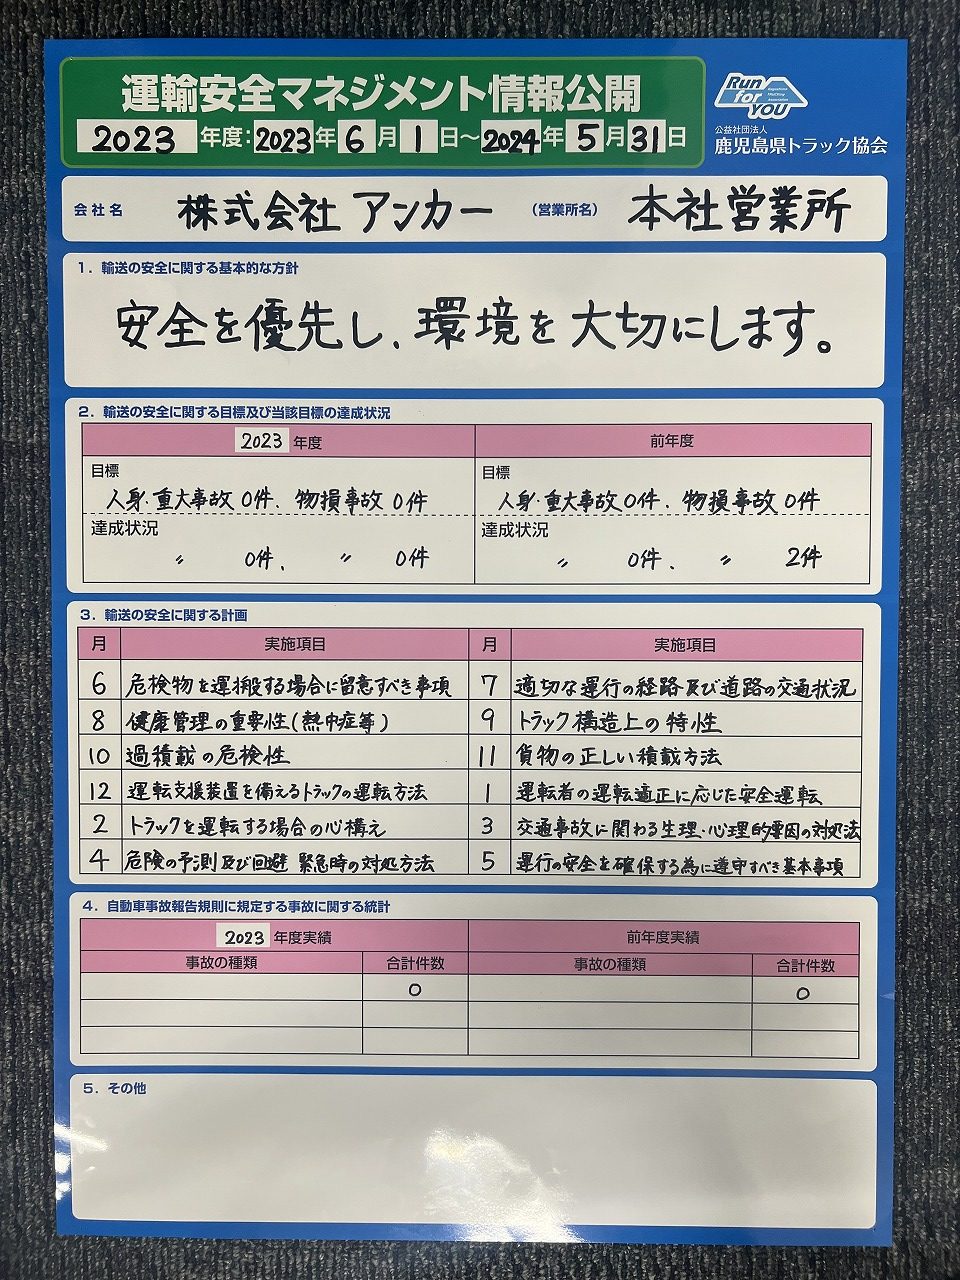 運輸安全マネジメント情報公開
2023 年度：2023年 6 月 1 日～2024年 5 月 31 日
Run for YOU
公益社団法人
鹿児島県トラック協会
会社名 株式会社 アンカー （営業所名） 本社営業所
1．輸送の安全に関する基本的な方針
安全を優先し、環境を大切にします。
2．輸送の安全に関する目標及び当該目標の達成状況
2023 年度 前年度
目標 目標
人身・重大事故 0件、物損事故 0件 人身・重大事故 0件、物損事故 0件
達成状況 達成状況
〃 0件、 〃 0件 〃 0件、 〃 2件
3．輸送の安全に関する計画
月 実施項目 月 実施項目
6 危検物を運搬する場合に留意すべき事項 7 適切な運行の経路及び道路の交通状況
8 健康管理の重要性（熱中症等） 9 トラック構造上の特性
10 過積載の危検性 11 貨物の正しい積載方法
12 運転支援装置を備えるトラックの運転方法 1 運転者の運転適正に応じた安全運転
2 トラックを運転する場合の心構え 3 交通事故に関わる生理・心理的要因の対処法
4 危険の予測及び回避 緊急時の対処方法 5 運行の安全を確保する為に遵守すべき基本事項
4．自動車事故報告規則に規定する事故に関する統計
2023 年度実績 前年度実績
事故の種類 合計件数 事故の種類 合計件数
0 0
5．その他